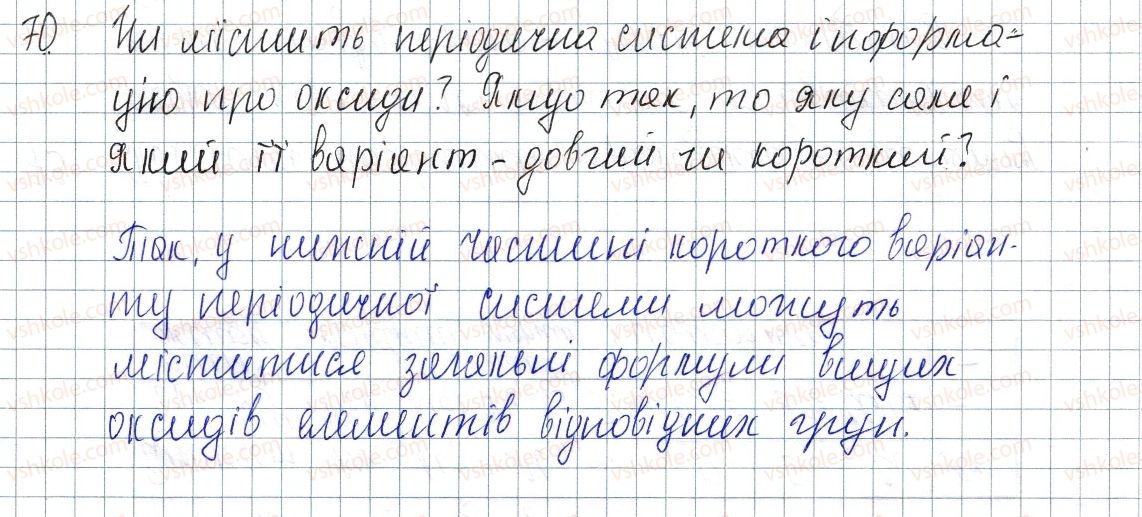 70. Чи містить періодична система інформа=
цію про оксиди? Якщо так, то яку саме і
який її варіант - довгий чи короткий?
Так, у нижній частині короткого варіан-
ту періодичної системи можуть
міститися загальні формули вищих
оксидів елементів відповідних груп.